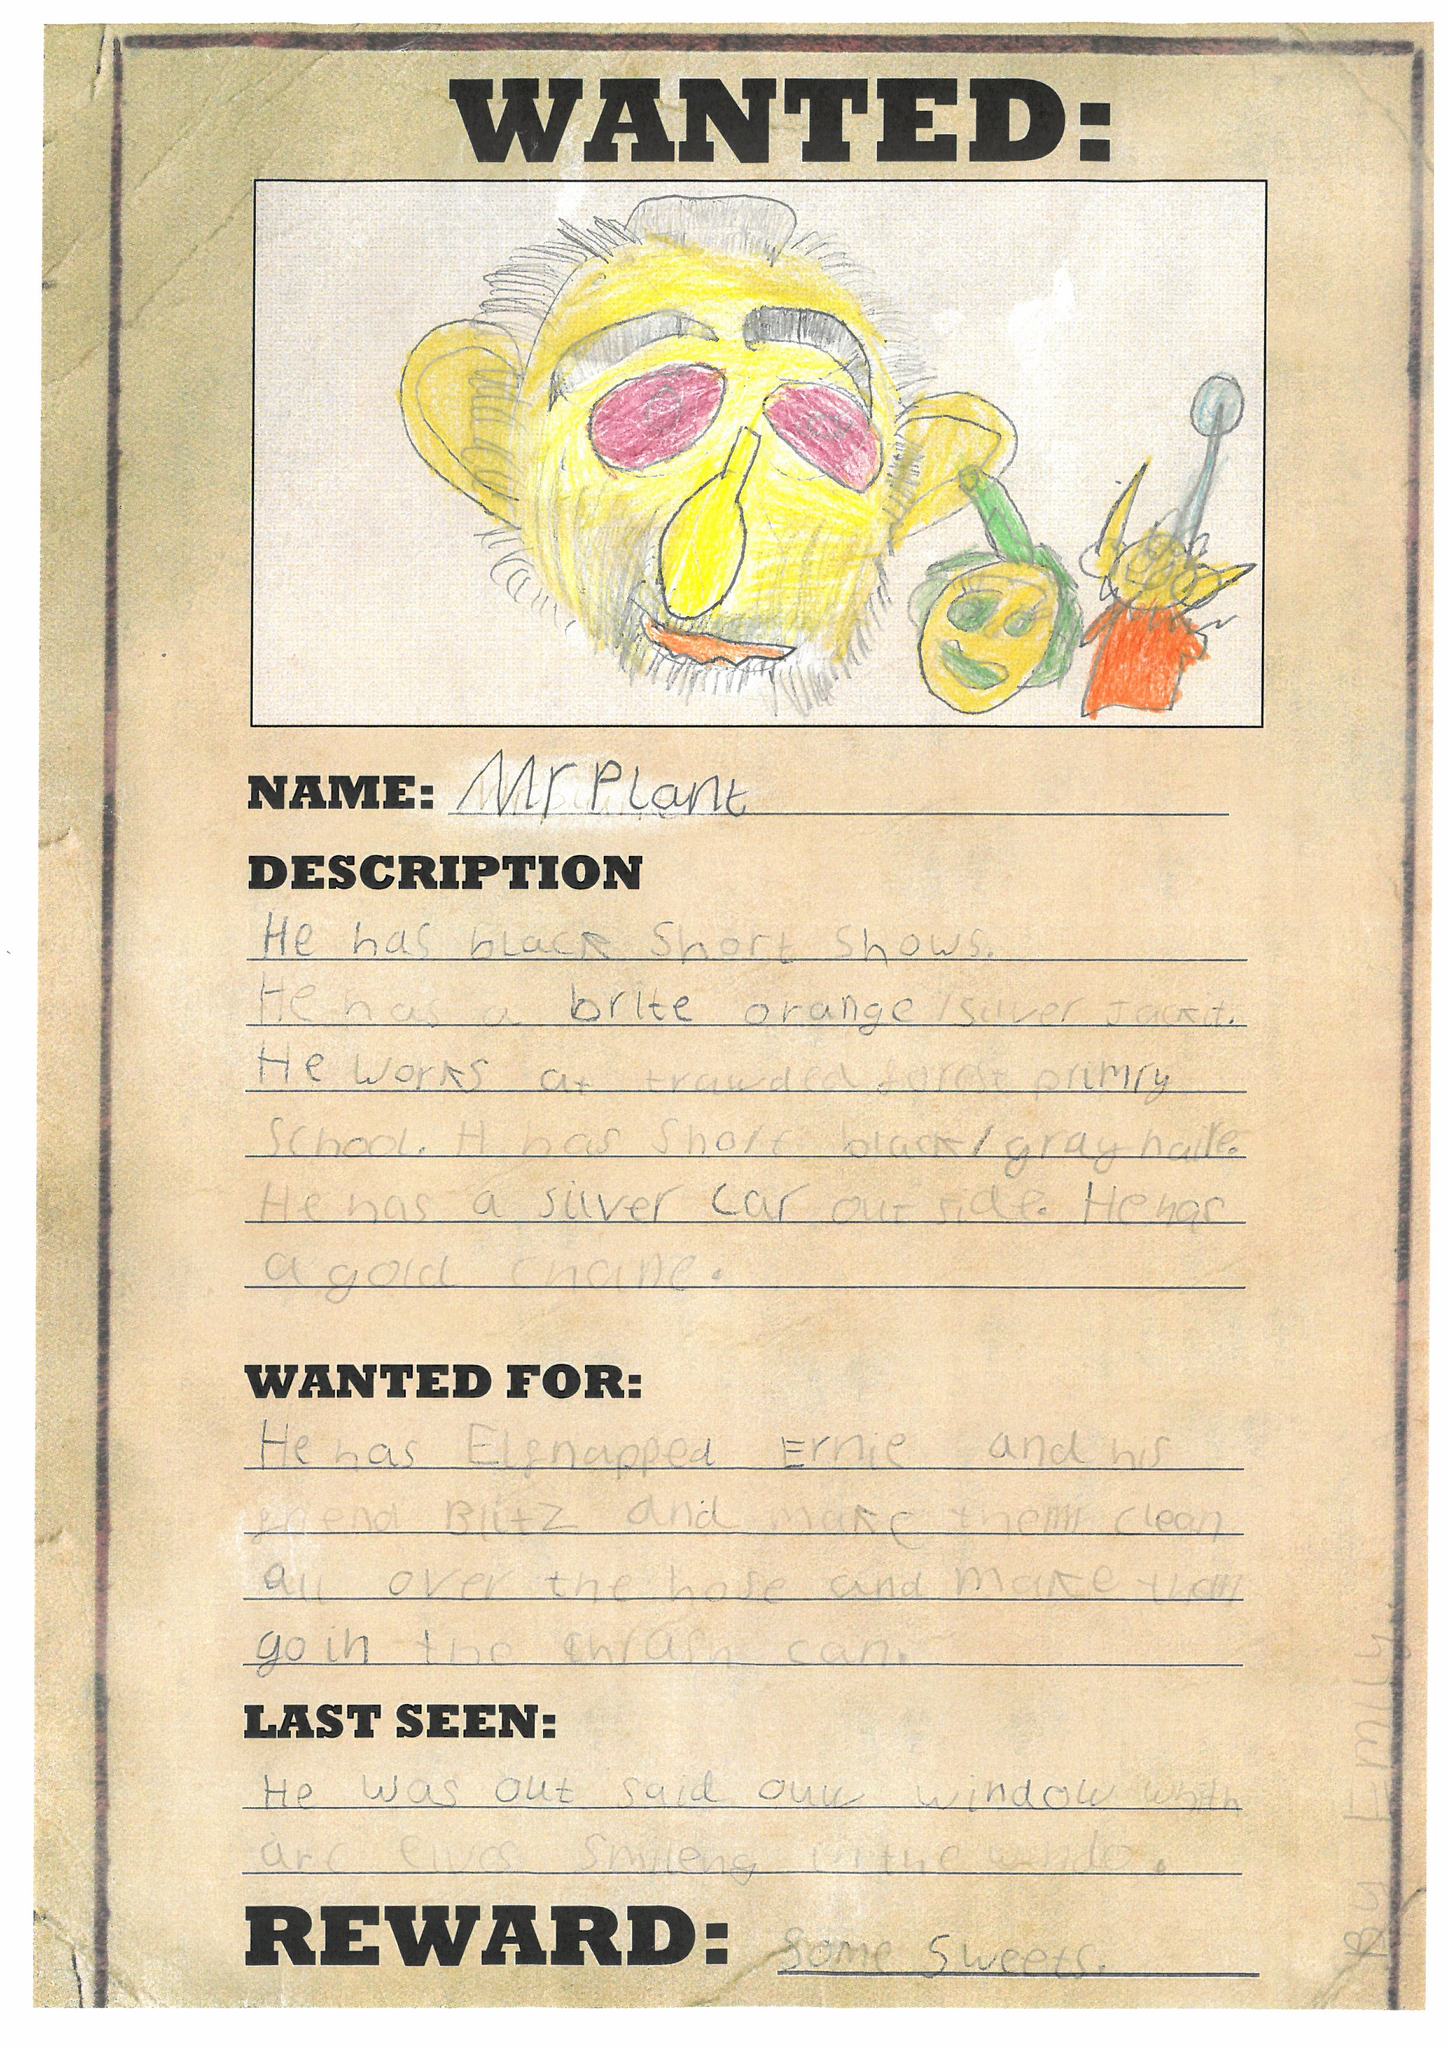 WANTED:
NAME: Mr Plant
DESCRIPTION
He has black Short Shows.
He has a brite orange/silver Jackit.
He works at trawded forest primry
School. H has Short black/gray haire.
He has a silver car out side. He has
a gold chane.
WANTED FOR:
He has Elfnapped Ernie and his
friend Blitz and make them clean
all over the hose and make tham
go in the thrash can.
LAST SEEN:
He was out said ouw window whith
are elves Smileng in the windo.
REWARD: Some Sweets.
By Emily.